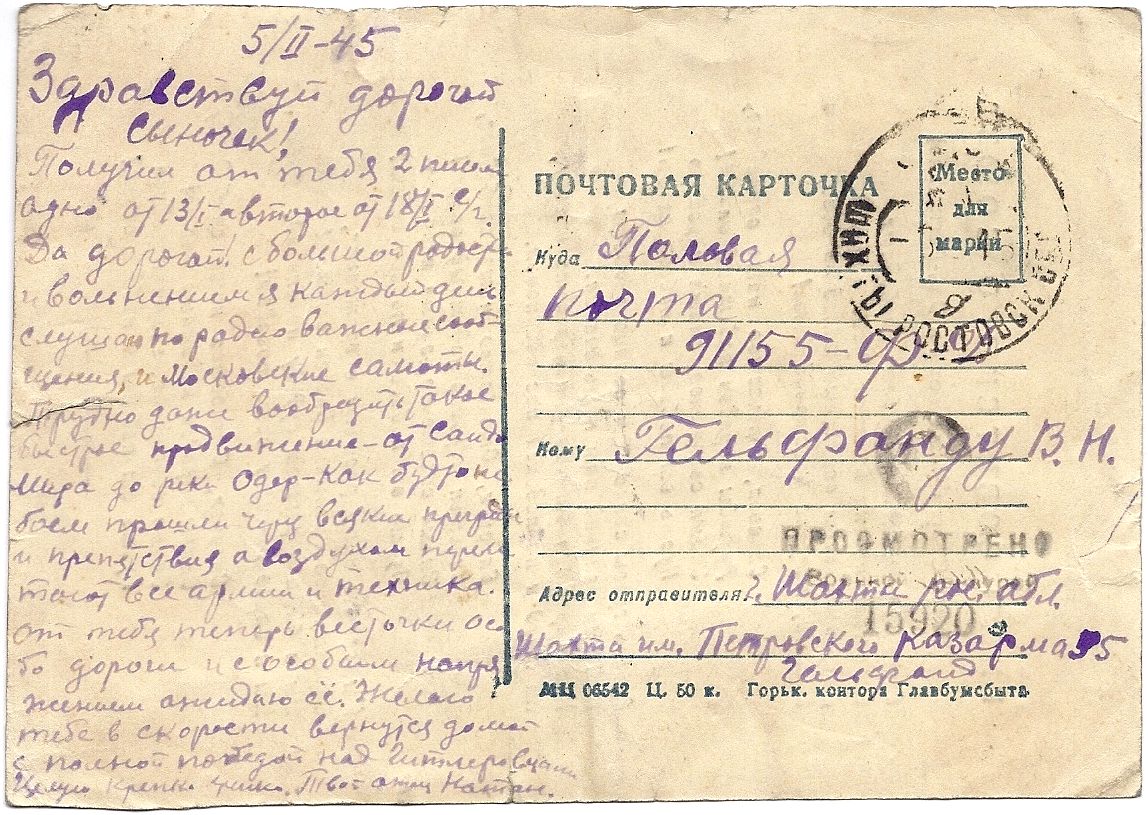 5/II-45
Здравствуй дорогой
сыночек!
Получил от тебя 2 писем
одно от 13/I а второе от 18/I с/г.
Да дорогой с большой радость
и волнением я каждый день
слушаю по радио важное сооб-
щения, и Московские салюты.
Трудно даже вообразить такое
быстрое продвижение-от Сандо
мира до реки Одер-как будто не
боем прошли чрез всякие прегради
и препятствия а воздухом
все армии и техника.
От тебя теперь весточки осо
бо дороги и с особым напря
жением ожидаю её. Желаю
тебе в скорости вернутся домой
с полной победой над Гитлеровцами
Целую крепко Твой отец Натан.
ПОЧТОВАЯ КАРТОЧКА
Место
для
марки
ШАХТЫ РОСТОВСК
Куда Полевая
почта
91155-Ф
Кому Гельфанду В. Н.
ПРОСМОТРЕНО
15920
Адрес отправителя: г. Шахти рн. обл.
Шахта им. Петровского казарма 35
Гельфанд
МЦ 06542 Ц. 50 к. Горьк. контора Главбумсбыта